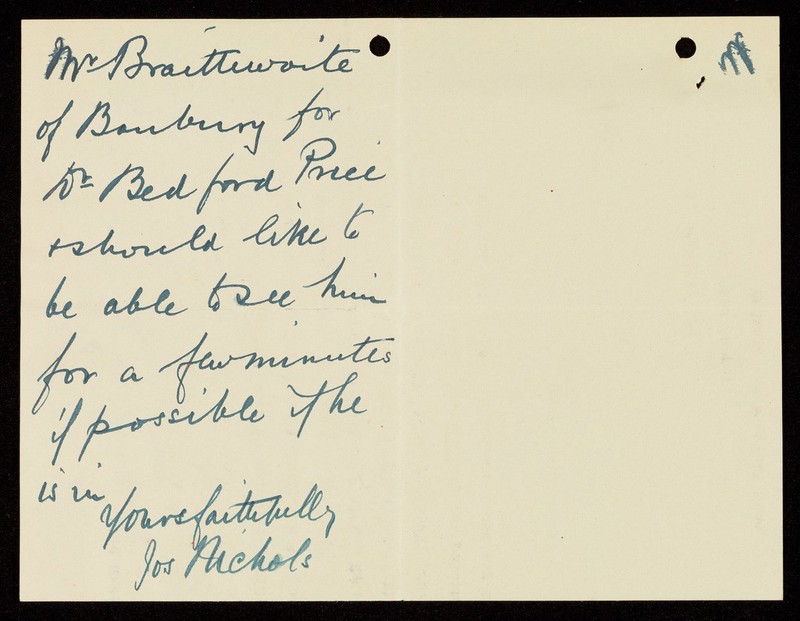 Mr Braithwaite
of Banbury for
Dr Bedford Price
& should like to
be able to see him
for a few minutes
if possible if he
is in
Yours faithfully
Jos Nichols